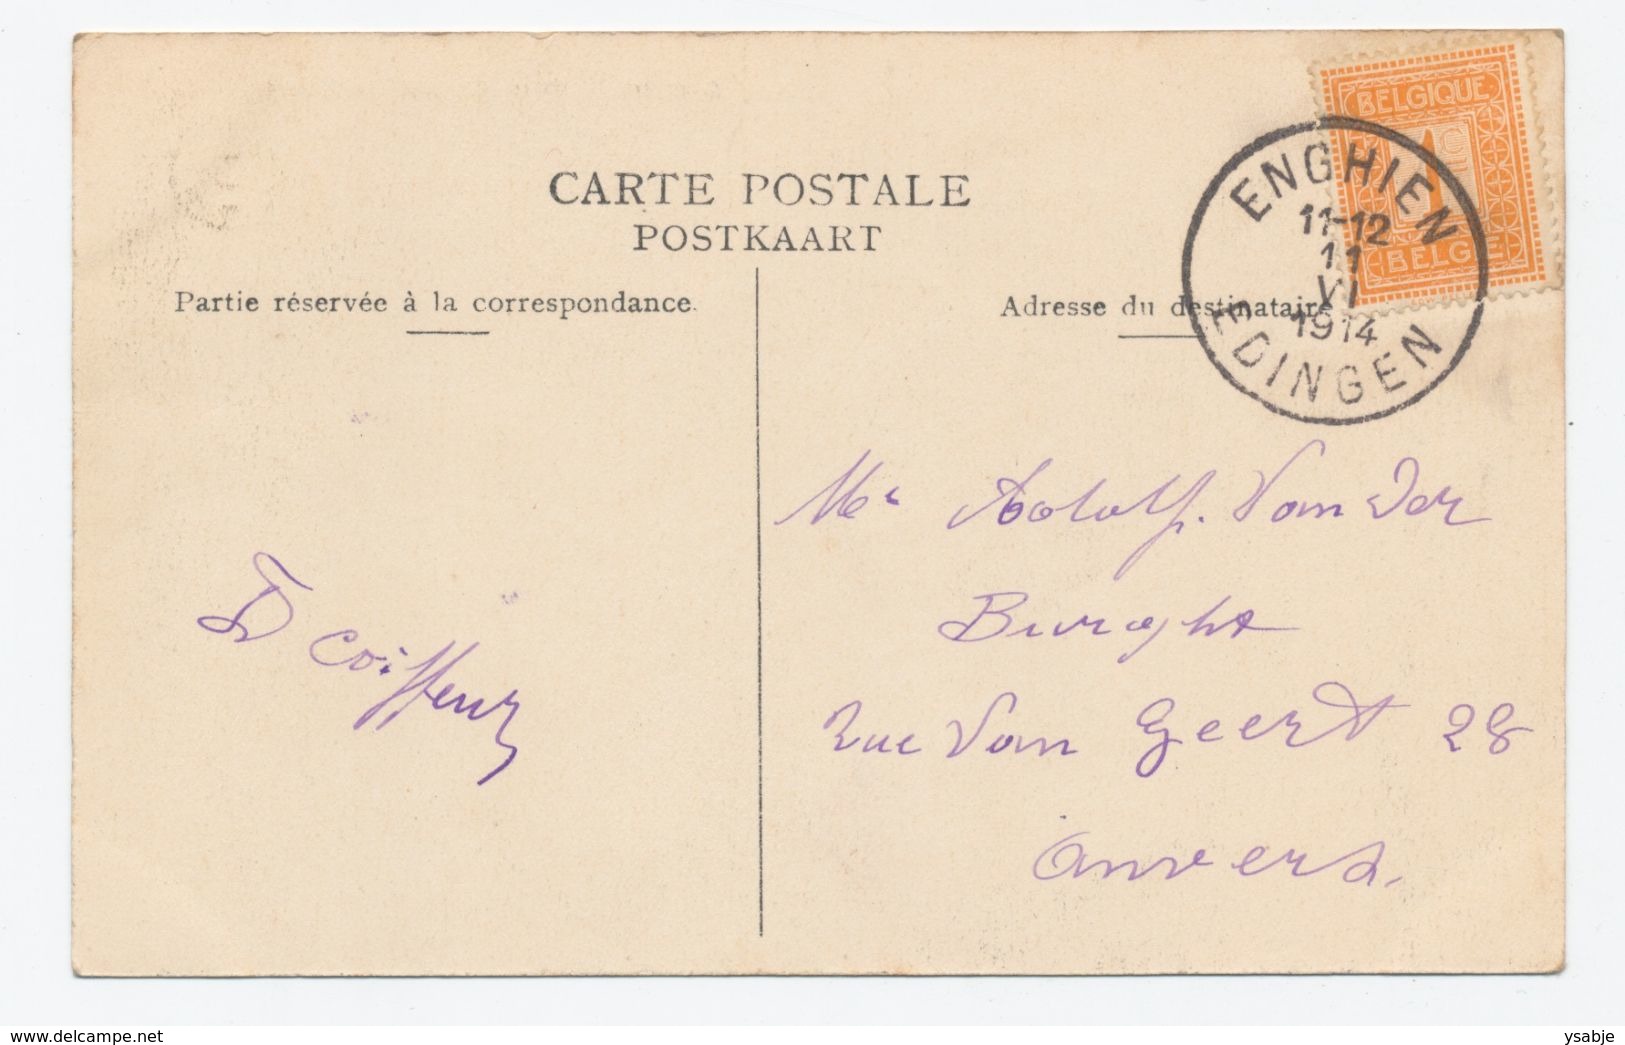 BELGIQUE
BELGIË
CARTE POSTALE
POSTKAART
Partie réservée à la correspondance.
Adresse du destinataire
ENGHIEN
11-12
11
VI
1914
EDINGEN
Mr Adolf. Van Der
Burght
Rue Van Geert 28
Anvers.
coiffeur
delcampe.net
ysabje